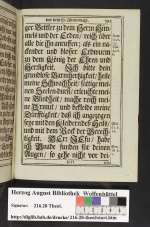 ger Bettler zu dem Herrn Him-
mels und der Erden / reich über
alle die ihn anruffen; als ein na-
ckender und blosser Erdwurm
zu dem König der Ehren und
Herrligkeit. Ich bitte dein
grundlose Barmhertzigkeit / heile
meine Schwachheit /
nen Seelen-durst / erleuchte
ne Blindheit / mache reich mei-
ne Armut / und bekleide meine
Dürfftigkeit / daß ich angezogen
sey mit den Kleidern des Heils /
und mit dem Rock der Gerech-
tigkeit. HErr JEsu / habe
ich Gnade funden für deinen
Augen / so gehe nicht vor dei-
Herzog August Bibliothek Wolfenbüttel
Signatur: 216.28 Theol.
http://diglib.hab.de/drucke/216-28-theol/start.htm